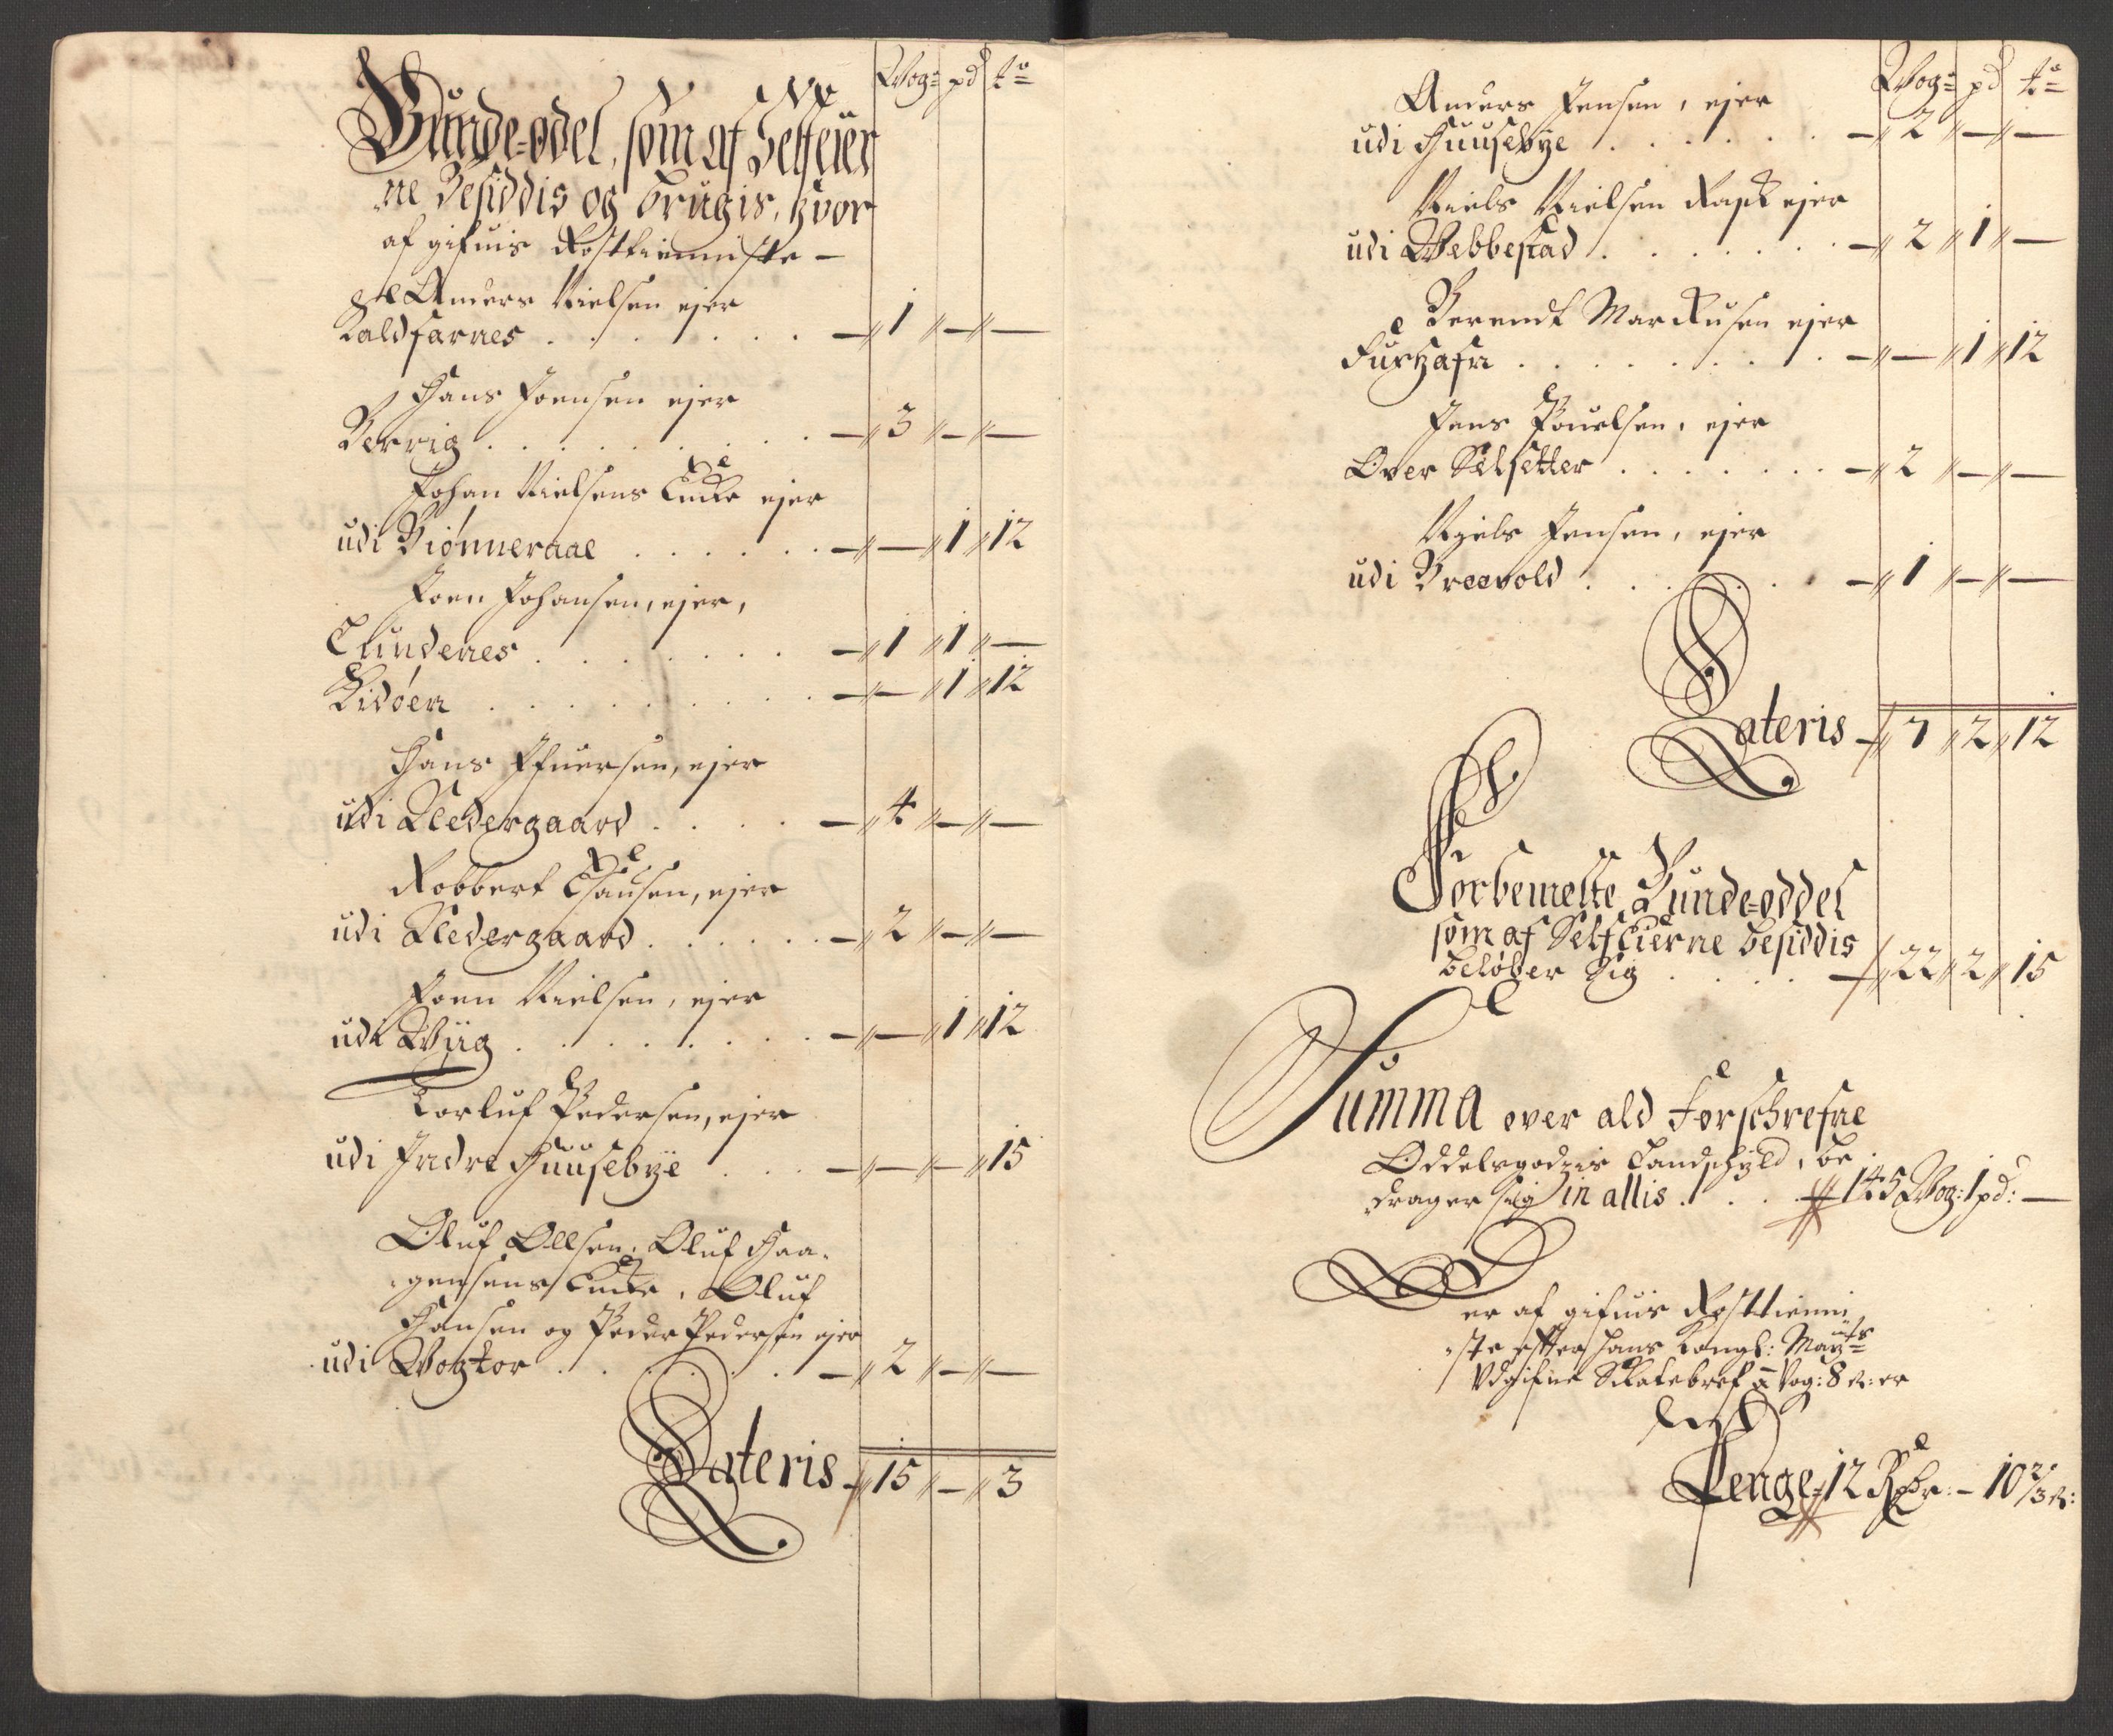 Wog: pd ℔
Bunde-odel, som af Selfeier
ne Besiddis og brugis, hvor
af gifuis Rosttienniste –
Sl Anders Nielsen ejer
Kaldfarnes . . . . . . – 1 – –
Hans Joensen ejer
Berrig . . . . . . . – 3 – –
Johan Nielsens Encke ejer
udi Biønneraae . . . . . – – 1 12
Joen Johansen, ejer,
Tundenes . . . . . . – 1 1 –
Kidøen . . . . . . . – – 1 12
Hans Ifuersen, ejer
udi Nedergaard . . . . – 4 – –
Robbert Clausen, ejer
udi Nedergaard . . . . . – 2 – –
Joen Nielsen, ejer
udi Wiig . . . . . . . – – 1 12
Torluf Pedersen, ejer
udi Indre Huusebye . . . – – – 15
Oluf Ollsen, Oluf Haa-
gensens Encke, Oluf
Hansen og Peder Pedersen ejer
udi Wogtor . . . . . . – 2 – –
Lateris – 15 – 3
Wog: pd ℔
Anders Jensen, ejer
udi Huusebye . . . . . – 2 – –
Niels Nielsen Rask ejer
udi Webbestad . . . . . . – 2 1 –
Berendt Marckusen ejer
Furhafn . . . . . . . – – 1 12
Jens Pouelsen, ejer
Over Selsetter . . . . . . – 2 – –
Niels Jensen, ejer
udi Breevold . . . . . – 1 – –
Lateris – 7 2 12
Forbemelte Bunde-oddel
som af Selfeierne besiddis
beløber Sig . . . . – 22 2 15
Summa over ald forschrefne
Oddelsgodzis Landschyld, be
drager sig in allis . . . 145 Wog: 1 pd: –
er af gifuis Rosttienni
ste effter Hans Kongl: Mayts
Udgifne Skatebref à Vog: 8 s: er
Penge – 12 Rdr: – 10 2/3 s: